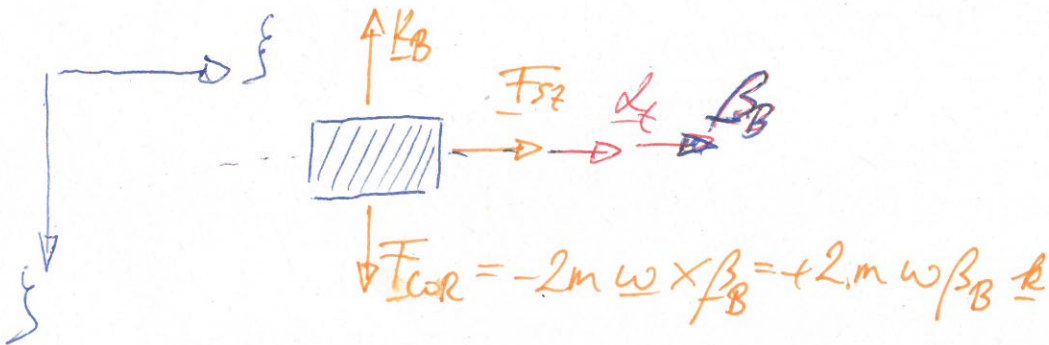 ξ
K_B
F_sz
α_t
β_B
F_COR = -2m ω × β_B = +2 m ω β_B k
ζ